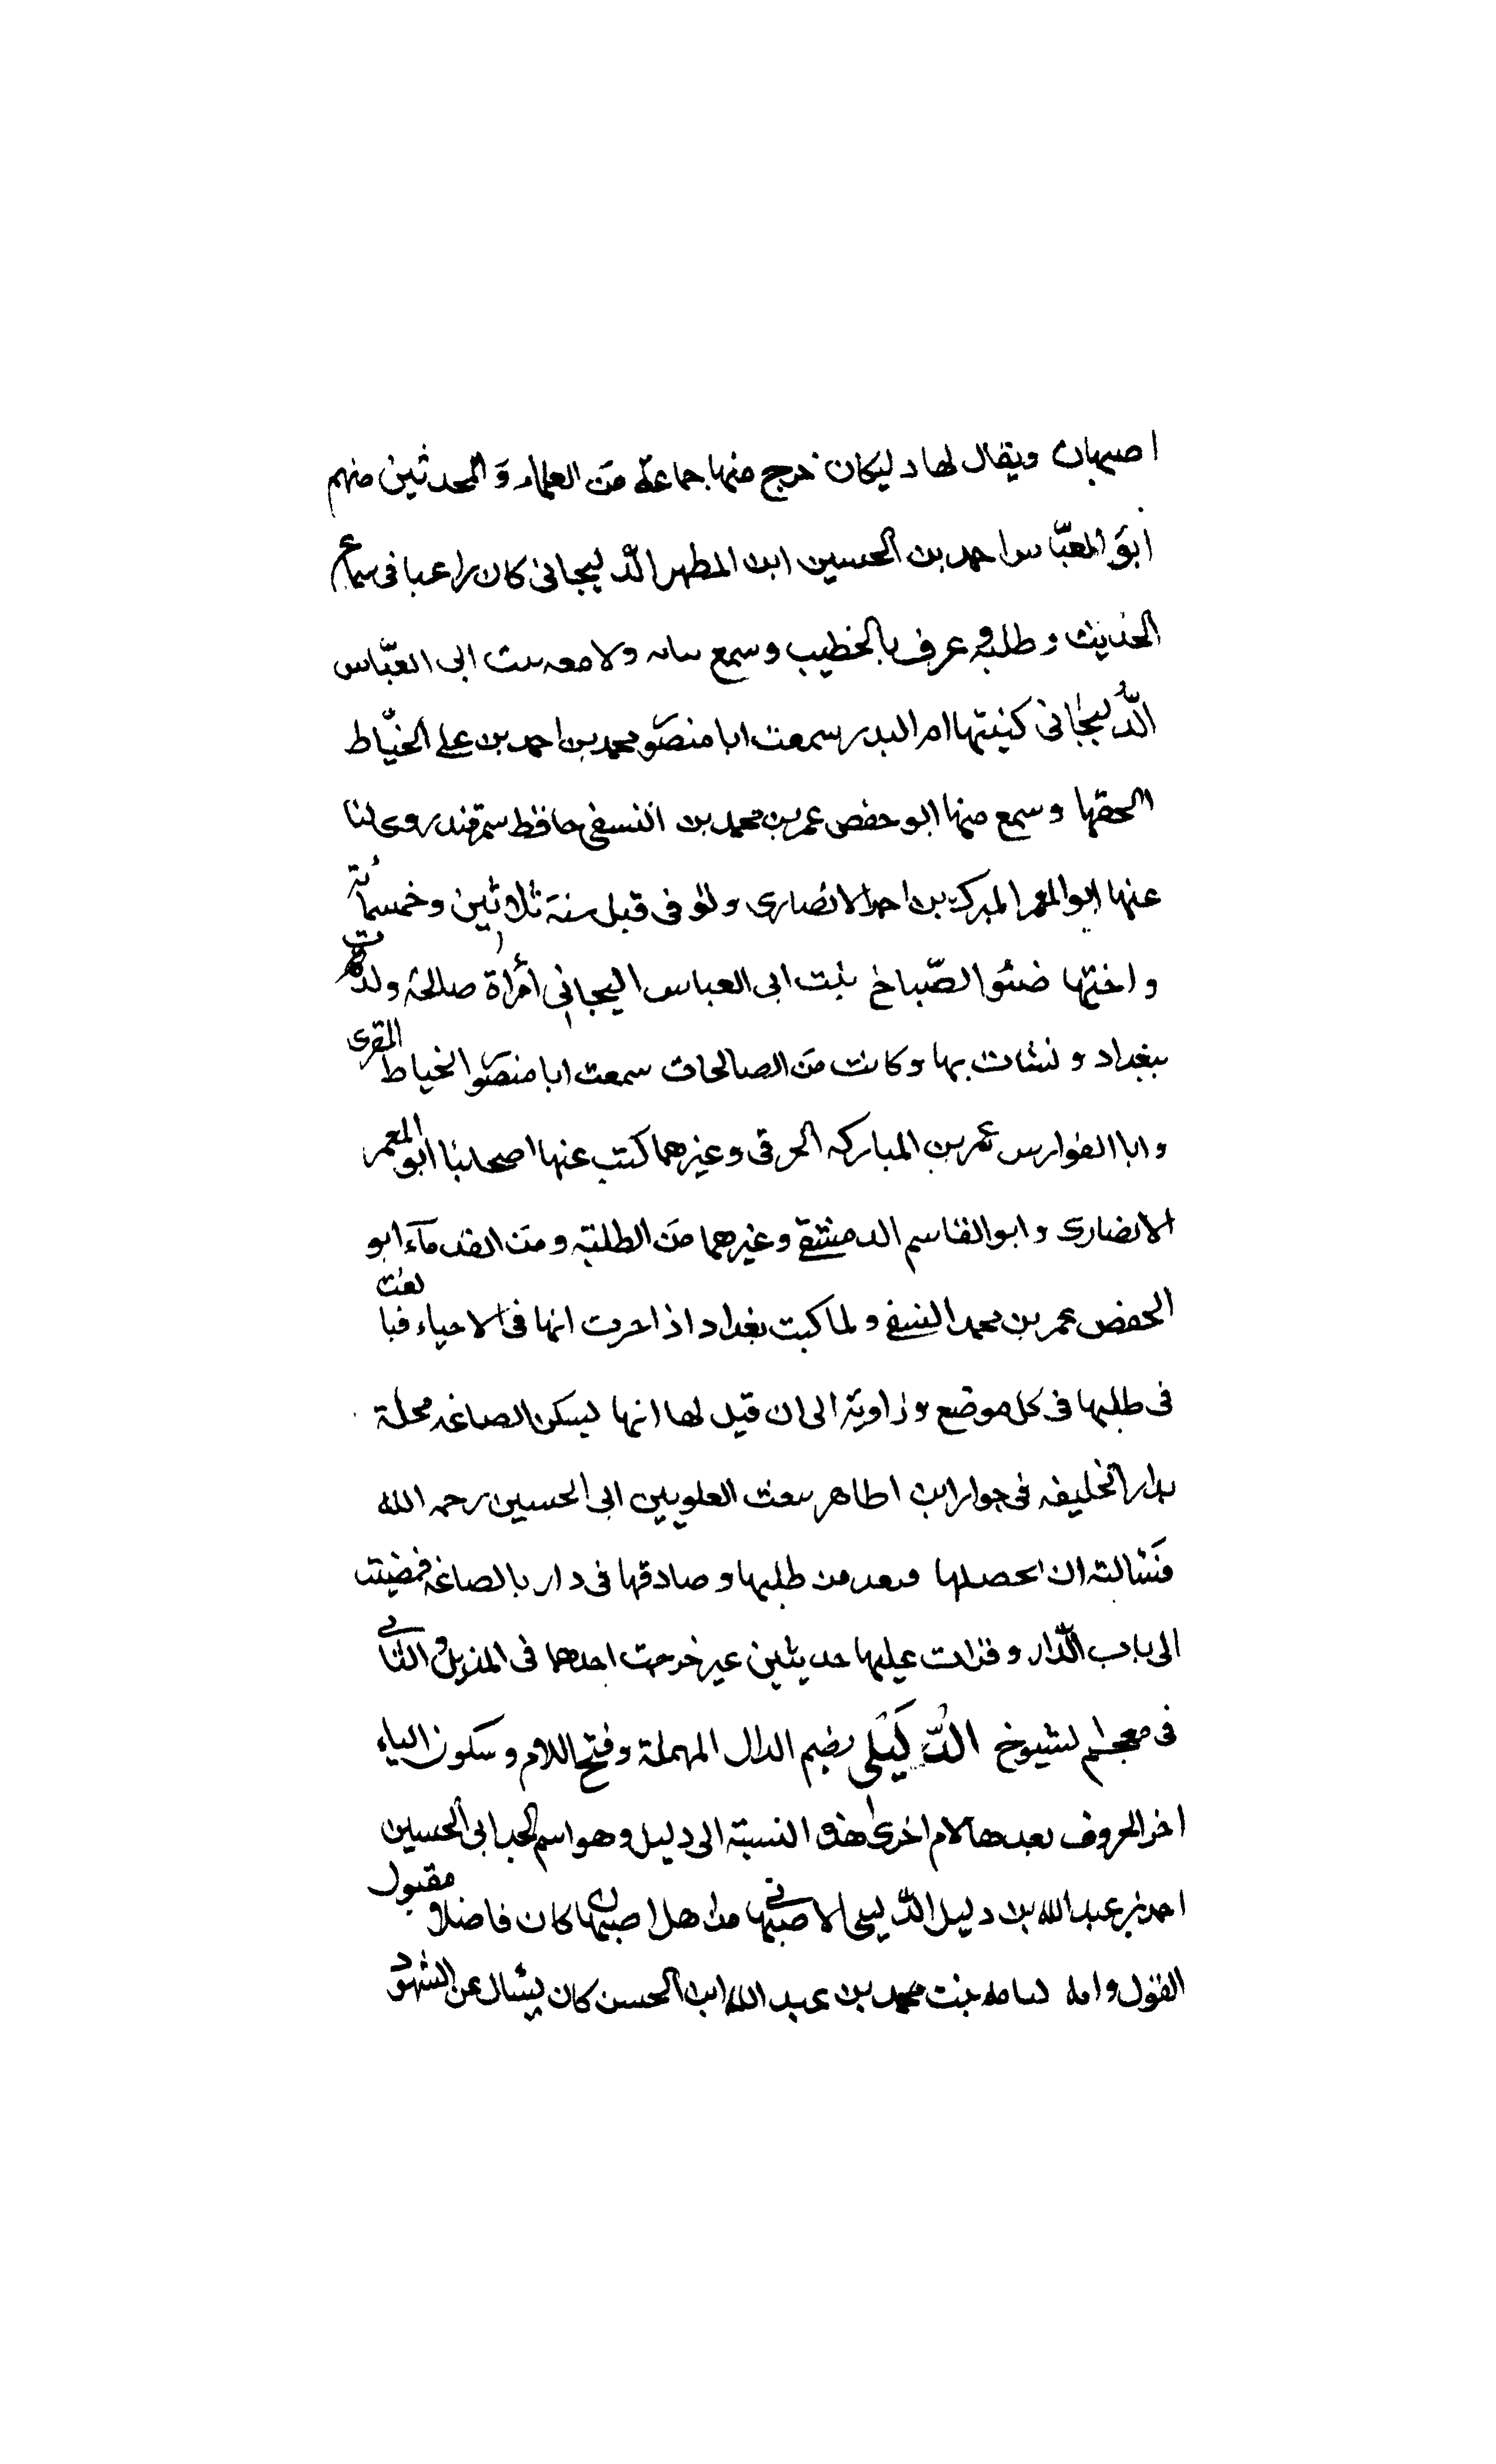 اصبهان ويقال لها دليكان خرج منها جماعة من العلماء والمحدثين منهم
ابو العبّاس احمد بن الحسين ابن المطهر الدليجانى كان راعبا فى سماع
الحديث وطلبه عرف بالخطيب وسمع ولامعه بنت ابى العبّاس
الدُّليجانى كنيتها ام البدر سمعت ابا منصور محمد بن احمد بن على الخيّاط
الحقها وسمع منها ابو حفص عمر بن محمد بن النسفى حافظ سمرقند روى لنا
عنها ابو المعمر المبرك بن احمد الانصارى وتوفى قبل سنة ثلاثين وخمسمائة
واختها ضئو الصّباخ بنت ابى العباس اليجانى امراة صالحة ولدت
ببغداد ونشات بها وكانت من الصالحات سمعت ابا منصور الخياط المقرى
وابا الفوارس عمر بن المباركه الحرقى وغيرهما كتب عنها اصحابنا ابو المعمر
الانصارى وابو القاسم الدمشقى وغيرهما من الطلبة ومن القدمآء ابو
الحفص عمر بن محمد النسفى ولما كبت بغداد اذا حرت انها فى الاحياء فبالغت
فى طلبها فى كل موضع وزاوية الى ان قيل لها انها ليسكن الصاغه محلة
بدار الخليفه فى جوار ابن اطاهر العلويين ابى الحسين رحمه الله
فسالته ان يحصلها وبعد من طلبها وصادقها فى دار بالصاغه فمضيت
الى باب الدّار وقرات عليها حديثين عير خرجت احدهما فى المذيل والثانى
فى معجم لشيوخ الدُّ لَيْلى بضم الدال المهملة وفتح اللام وسكون الياء
اخر الحروف بعدها لام اخرى هذه النسبة الى دليل وهو اسم لجد ابى الحسين
احمد بن عبد الله بن دليل الدّليلى الاصبهانى من اهل اصبهان كان فاضلا مقبول
القول وامه بنت محمد بن عبد الله ابن الحسن كان يسال عن الشهود